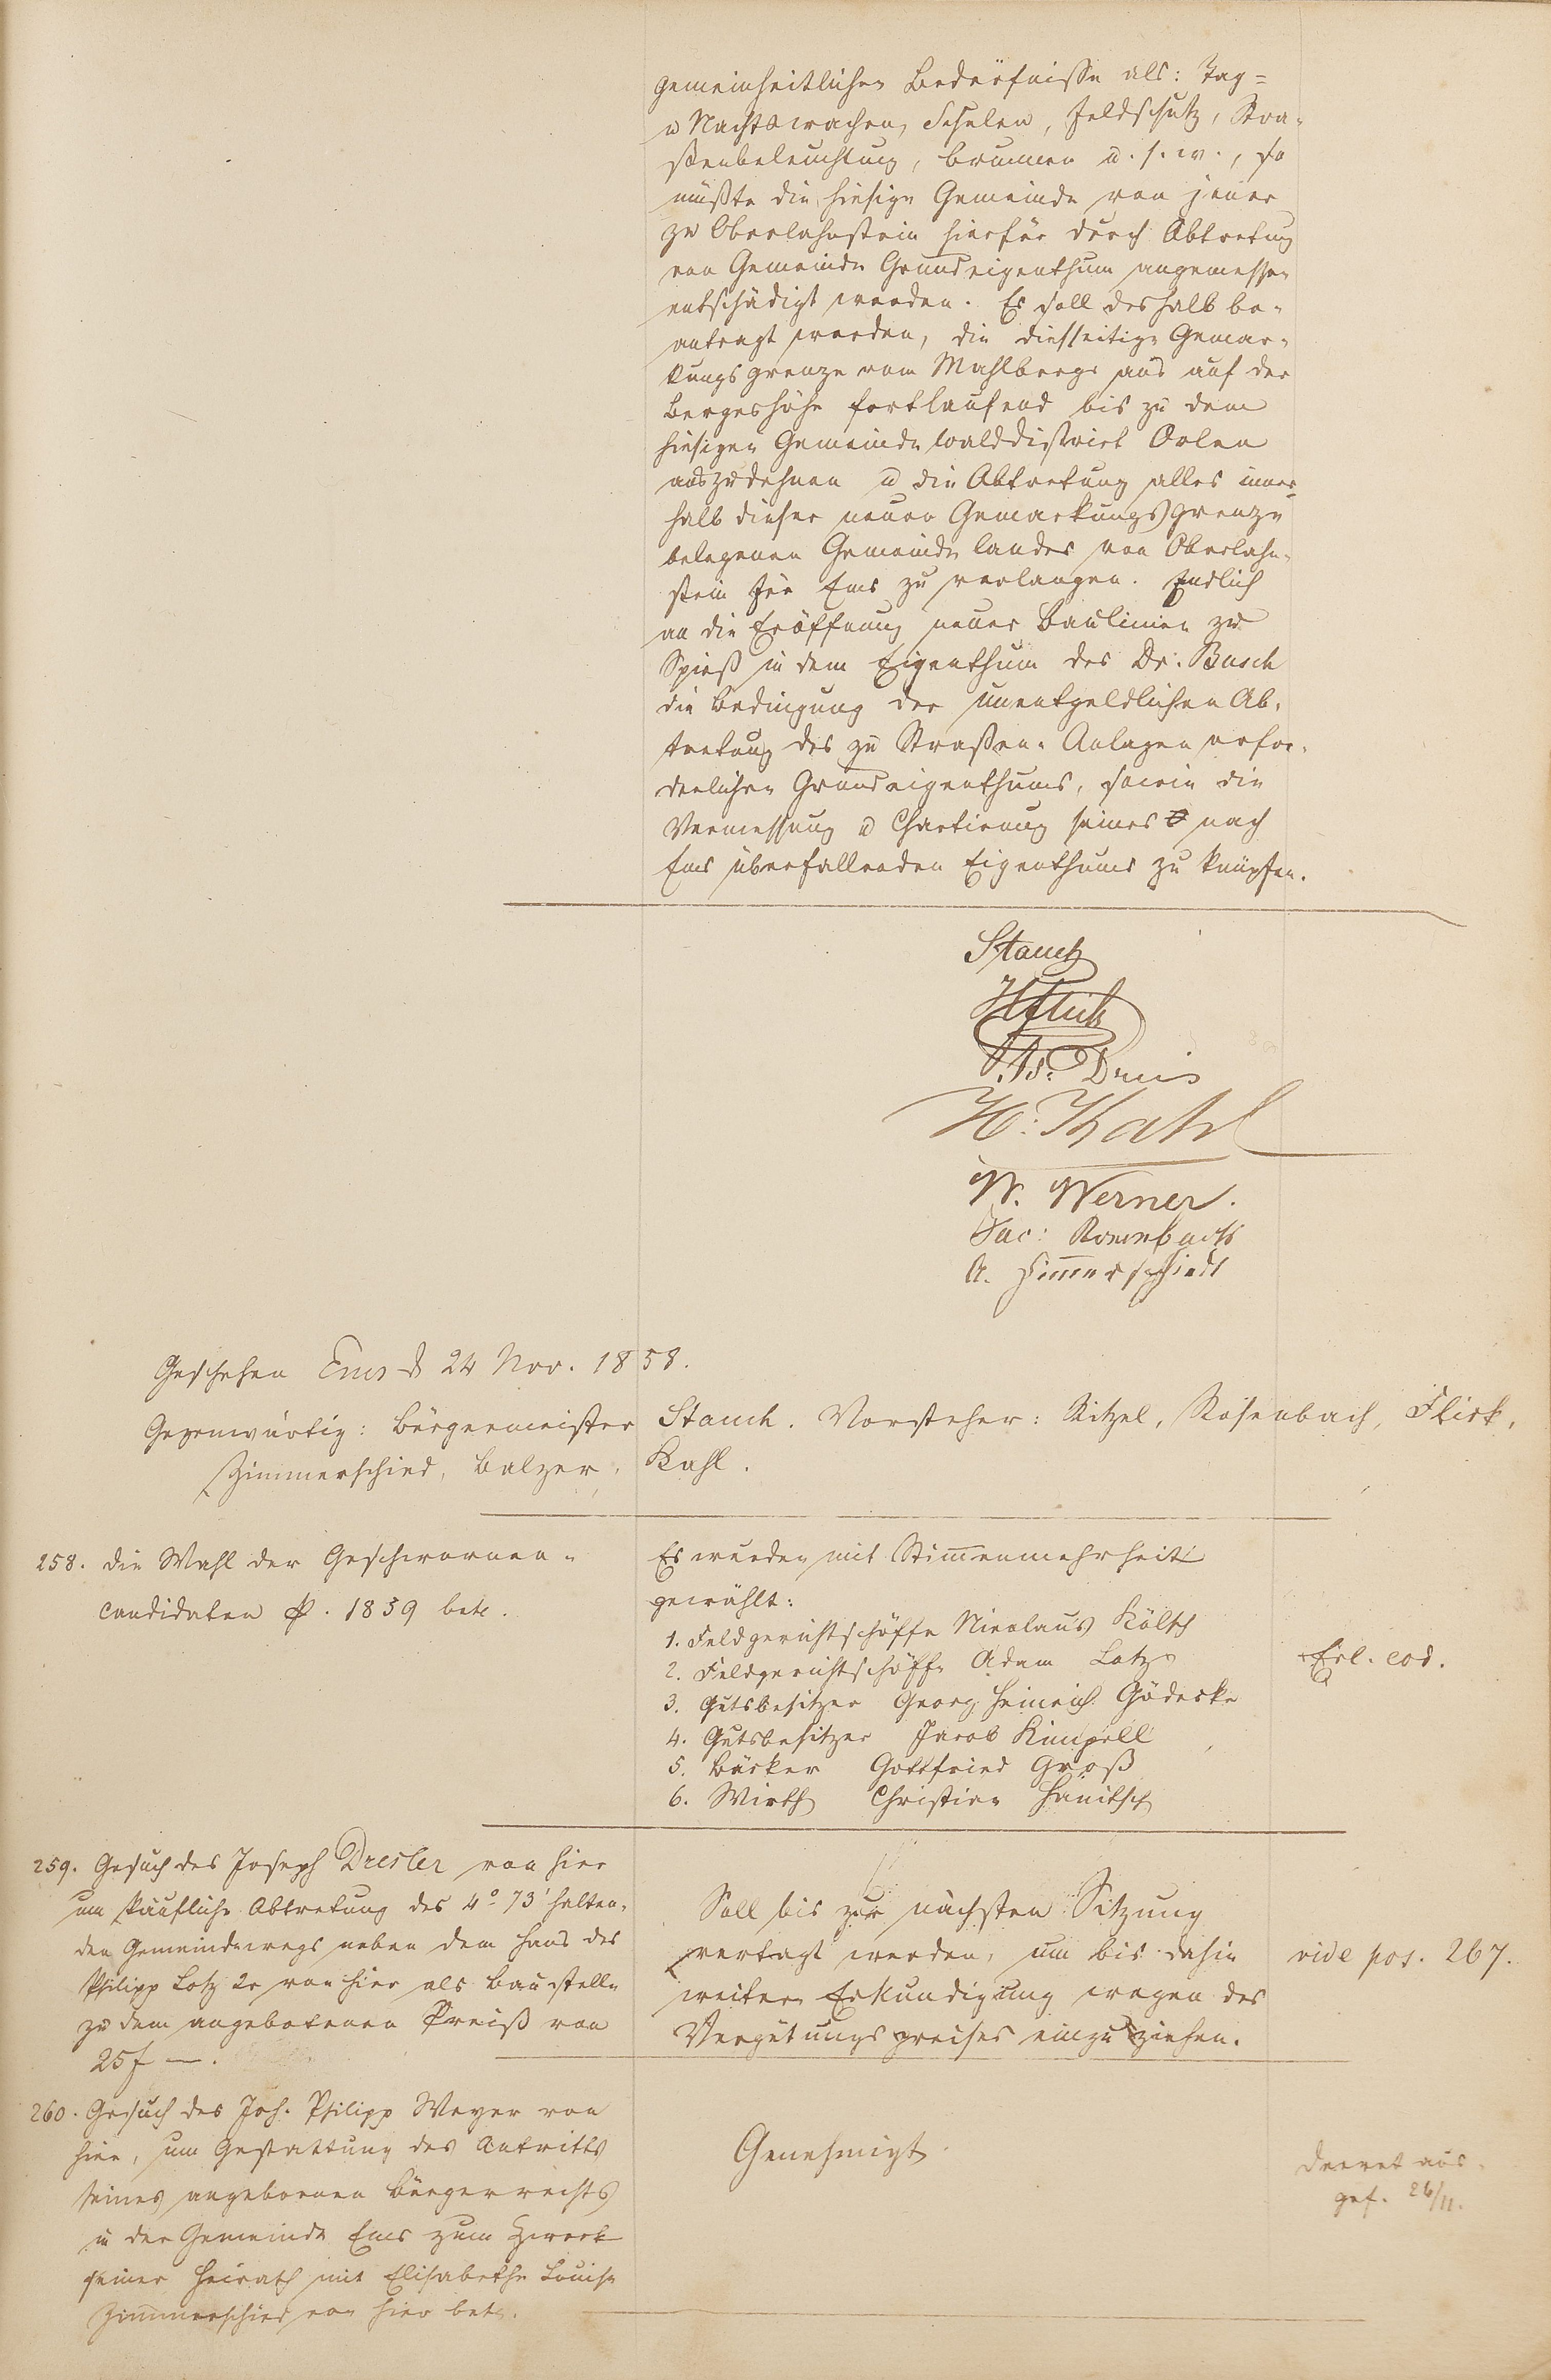 gemeinheitlichen Bedürfnisse als: Tag=
u Nachtswachen, Schulen, Feldschutz, Stra-
ßenbeleuchtung, Brunnen u. s. w., so
müßte die hiesige Gemeinde von jener
zu Oberlahnstein hierfür durch Abtretung
von Gemeinde Grundeigenthum angemessen
entschädigt werden. Es soll deshalb be-
antragt werden, die diesseitige Gemar-
kungsgrenze vom Mahlberge aus auf der
Bergeshöhe fortlaufend bis zu dem
hiesigen Gemeindewalddistrict Orlen
auszudehnen u die Abtretung alles inner-
halb dieser neuen Gemarkungsgrenze
belegenen Gemeindelandes von Oberlahn-
stein für Ems zu verlangen. Endlich
an die Eröffnung neuer Baulinien zu
Spieß in dem Eigenthum des Dr. Busch
die Bedingung der unentgeldlichen Ab-
tretung des zu Straßen-Anlagen erfor-
derlichen Grundeigenthums, sowie die
Vermessung u Chartirung seines nach
Ems überfallenden Eigenthums zu knüpfen.
Stauch
HFlick
H: Kahl
W. Werner.
Jac: Rosenbach
A. Zimmerschiedt
Geschehen Ems d 24 Nov. 1858.
Gegenwärtig: Bürgermeister Stauch. Vorsteher: Kitzel, Rosenbach, Flick,
Zimmerschied, Balzer, Kahl.
258. die Wahl der Geschworenen-
candidaten p. 1859 betr.
Es wurden mit Stimmenmehrheit
gewählt:
1. Feldgerichtschöffe Nicolaus Kölsch
2. Feldgerichtschöffe Adam Lotz
3. Gutsbesitzer Georg Heinrich Gödecke
4. Gutsbesitzer Jacob Kimpell
5. Bäcker Gottfried Groß
6. Wirth Christian Hänitsch
Erl. eod.
259. Gesuch des Joseph Dresler von hier
um käufliche Abtretung des 4° 73' halten-
den Gemeindewegs neben dem Haus des
Philipp Lotz 2r von hier als Baustelle
zu dem angebotenen Preiß von
25f —.
Soll bis zur nächsten Sitzung
vertagt werden, um bis dahin
weitere Erkundigung wegen des
Vergütungspreises einzuziehen.
vide pos. 267.
260. Gesuch des Joh. Philipp Meyer von
hier, um Gestattung des Antritts
seines angebornen Bürgerrechts
in der Gemeinde Ems zum Zweck
seiner Heirath mit Elisabethe Louise
Zimmerschied von hier betr.
Genehmigt.
Decret aus-
gef. 26/11.